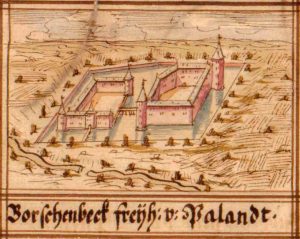 Borschenbeck freÿh: v: Palandt.